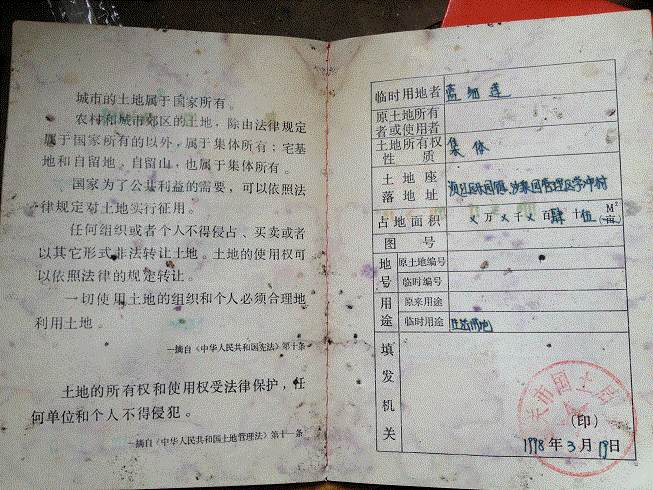 城市的土地属于国家所有。
农村和城市郊区的土地，除由法律规定
属于国家所有的以外，属于集体所有；宅基
地和自留地、自留山，也属于集体所有。
国家为了公共利益的需要，可以依照法
律规定对土地实行征用。
任何组织或者个人不得侵占、买卖或者
以其它形式非法转让土地。土地的使用权可
以依照法律的规定转让。
一切使用土地的组织和个人必须合理地
利用土地。
—摘自《中华人民共和国宪法》第十条
土地的所有权和使用权受法律保护，任
何单位和个人不得侵犯。
—摘自《中华人民共和国土地管理法》第十一条
临时用地者
原土地所有
者或使用者
土地所有权
性 质 集体
土地座
落地址
占地面积 ×万×千×百肆十伍 M²(亩)
图 号
地号 原土地编号
临时编号
用途 原来用途
临时用途 生活用地
填发机关
国土
(印)
1998年3月19日